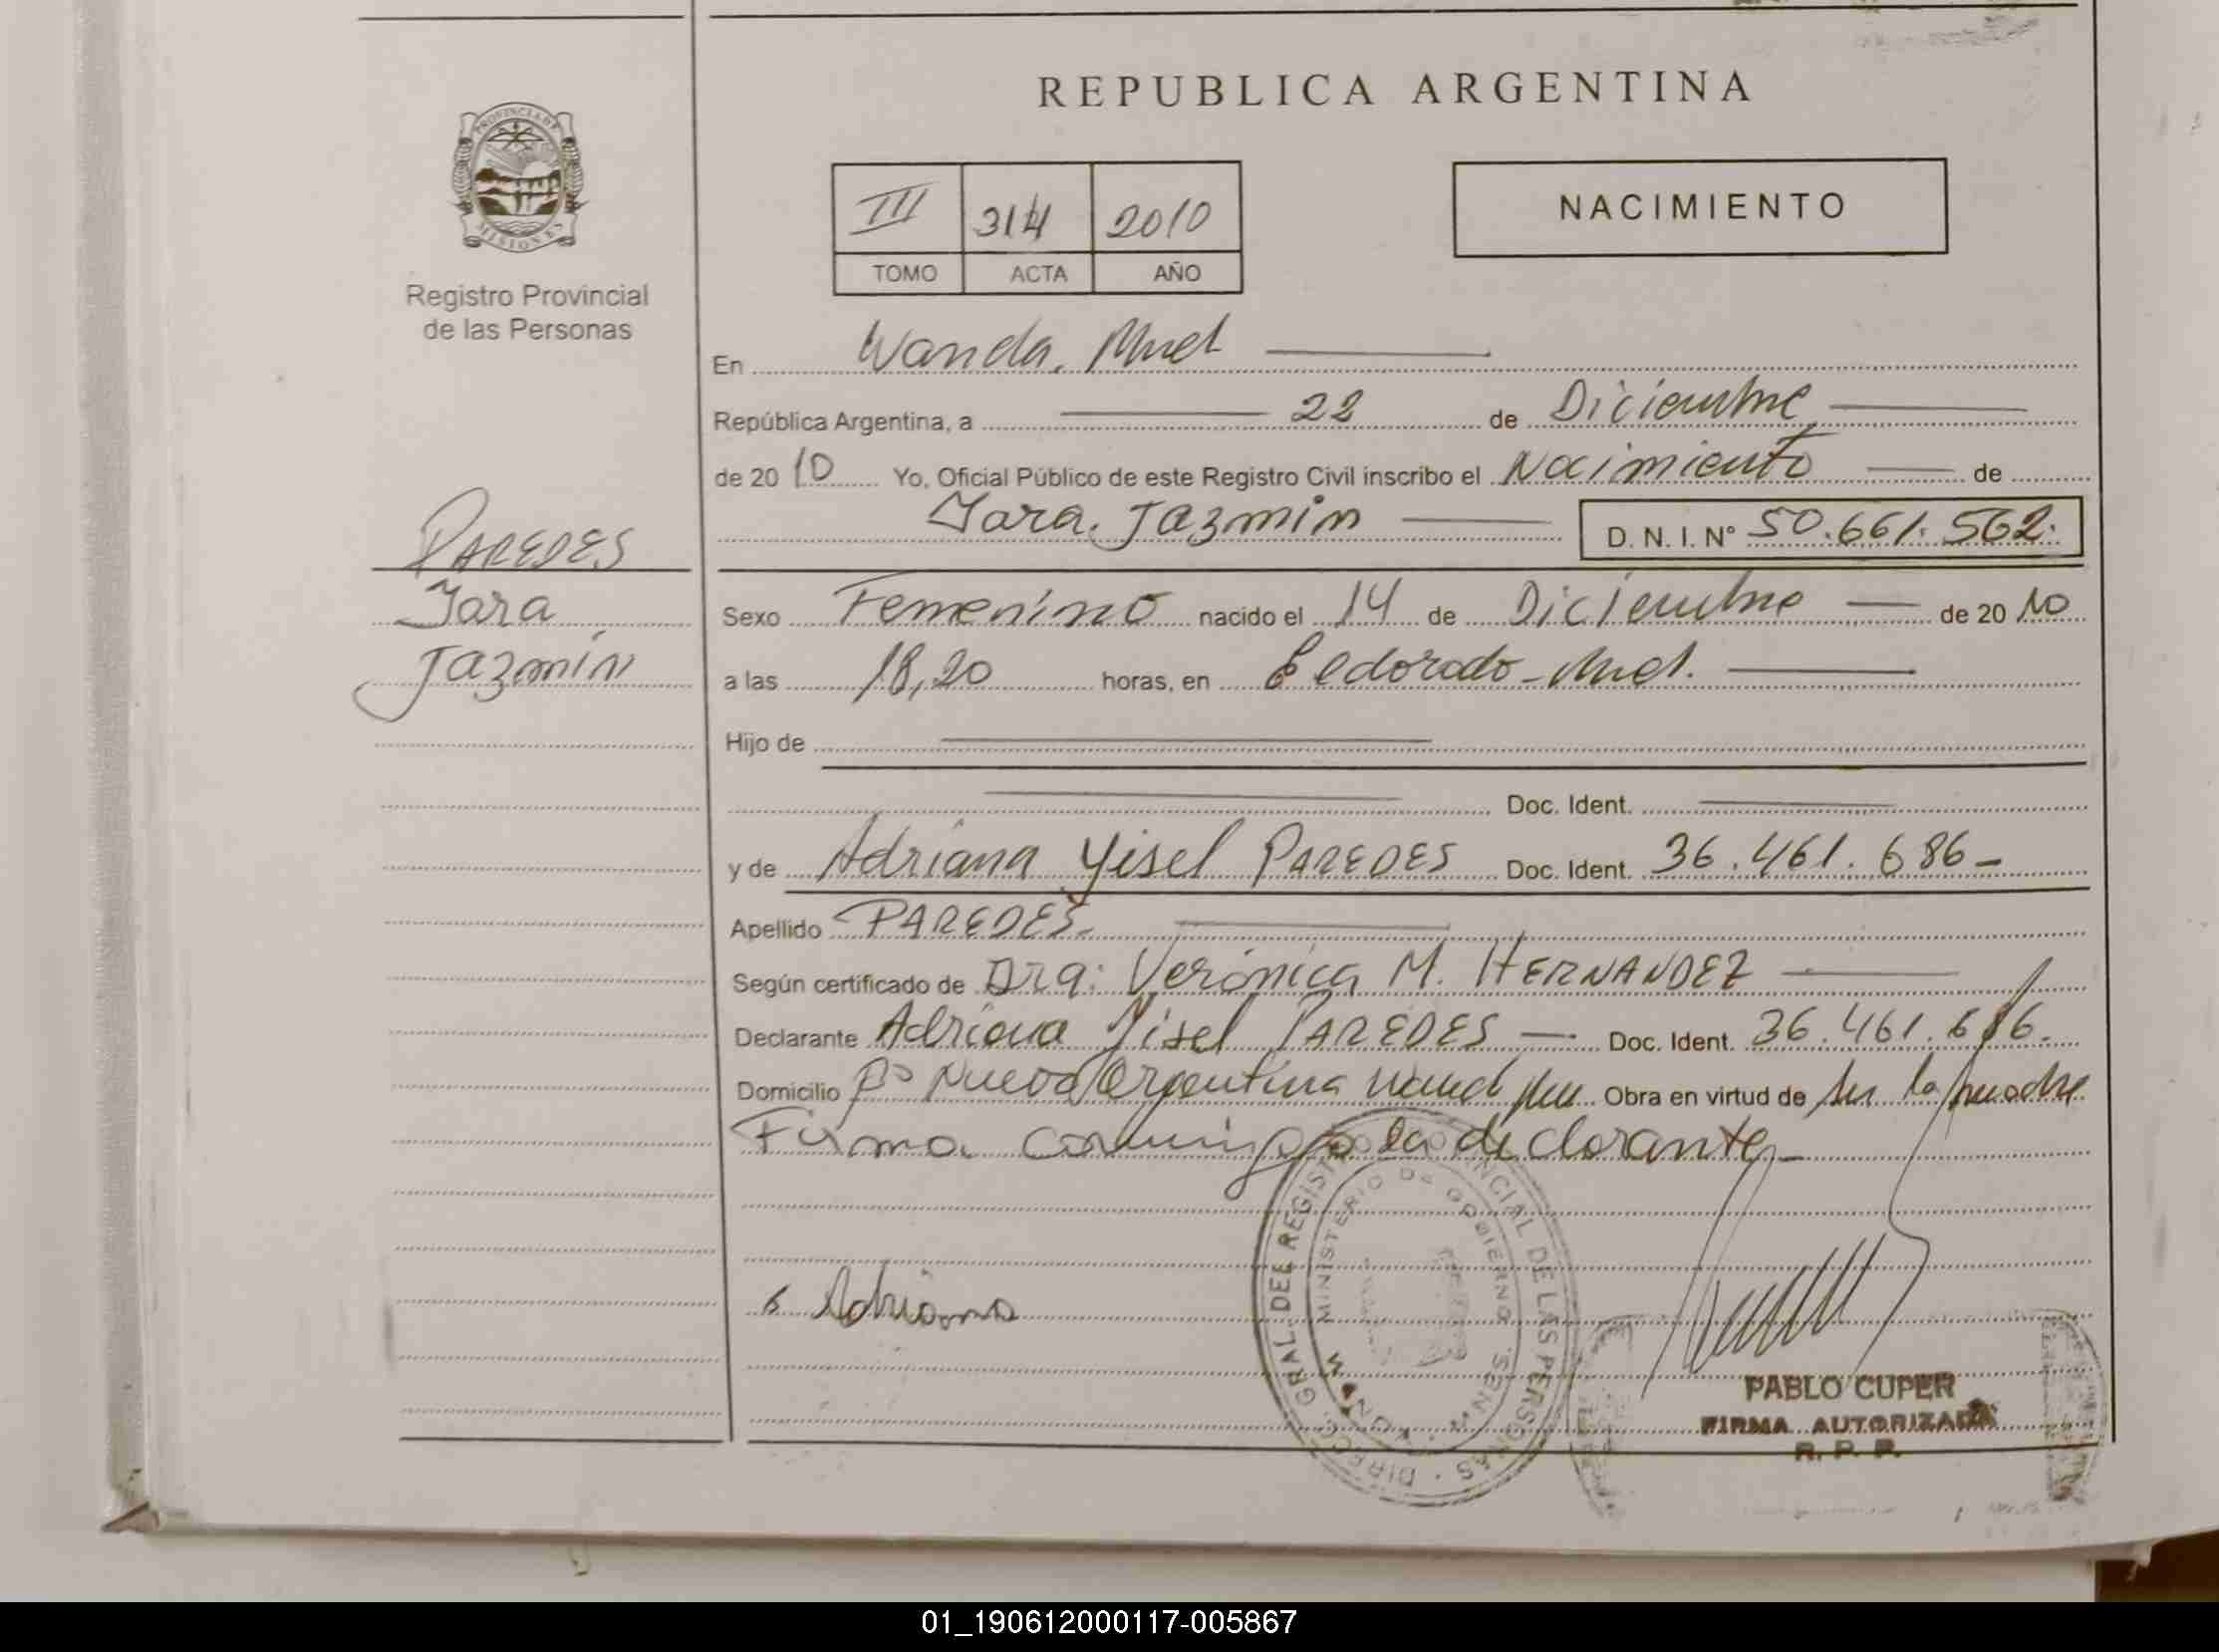 REPUBLICA ARGENTINA
PROVINCIA DE MISIONES
Registro Provincial
de las Personas
III 314 2010
TOMO ACTA AÑO
NACIMIENTO
PAREDES
Yara
Jazmín
En Wanda, Mnes
República Argentina, a 22 de Diciembre
de 2010 Yo, Oficial Público de este Registro Civil inscribo el Nacimiento de
Yara Jazmin D. N. I. N° 50.661.562.
Sexo Femenino nacido el 14 de Diciembre de 2010
a las 18,20 horas, en Eldorado - Mnes.
Hijo de
Doc. Ident.
y de Adriana Yisel PAREDES Doc. Ident. 36.461.686-
Apellido PAREDES.
Según certificado de Dra: Verónica M. HERNANDEZ
Declarante Adriana Yisel PAREDES Doc. Ident. 36.461.686.
Domicilio Bº Nueva Argentina Obra en virtud de ser la madre
Firma conmigo la declarante_
Adriana
DIRECC. GRAL. DEL REGISTRO PROVINCIAL DE LAS PERSONAS
MINISTERIO DE GOBIERNO
PABLO CUPER
FIRMA AUTORIZADA
R. P. P.
01_190612000117-005867